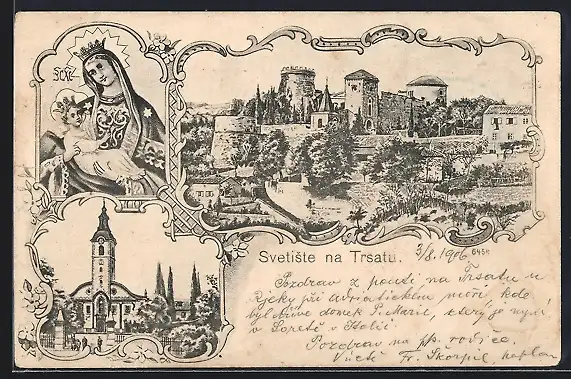 Svetište na Trsatu.
3/8. 1906
645K
Pozdrav z pouti na Trsatu u
Rjeky při adriatickém moři, kde
byl dříve domek P. Marie, který je nyní
v Loretě v Itálii
Pozdrav na pp. rodiče.
Fr. Škorpil, kaplan